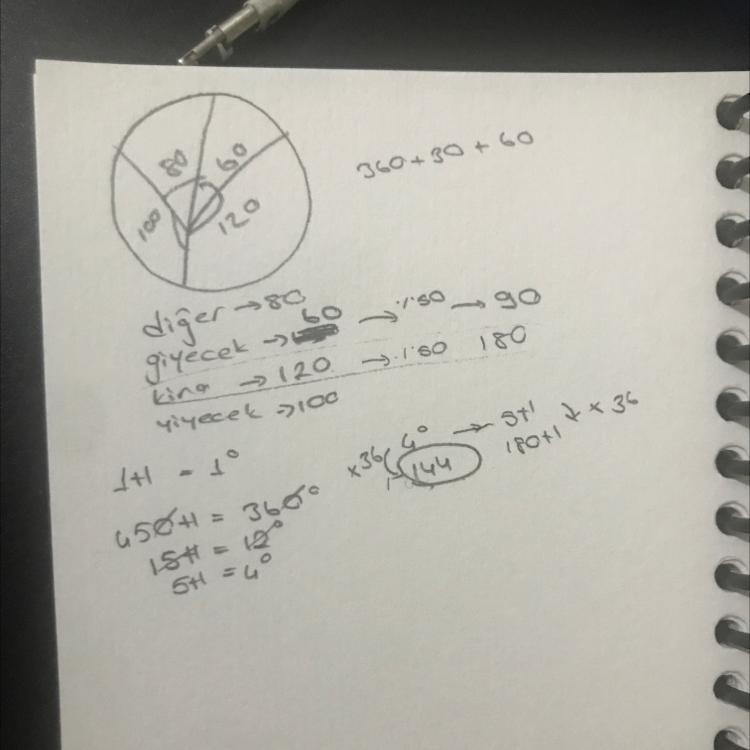 80 60
100 120
360+30+60
diğer → 80
giyecek → 60 → %50 → 90
kira → 120 → %50 180
yiyecek → 100
1tl = 1°
450tl = 360°
15tl = 12°
5tl = 4°
x36 4° → 5tl
144 180tl x 36